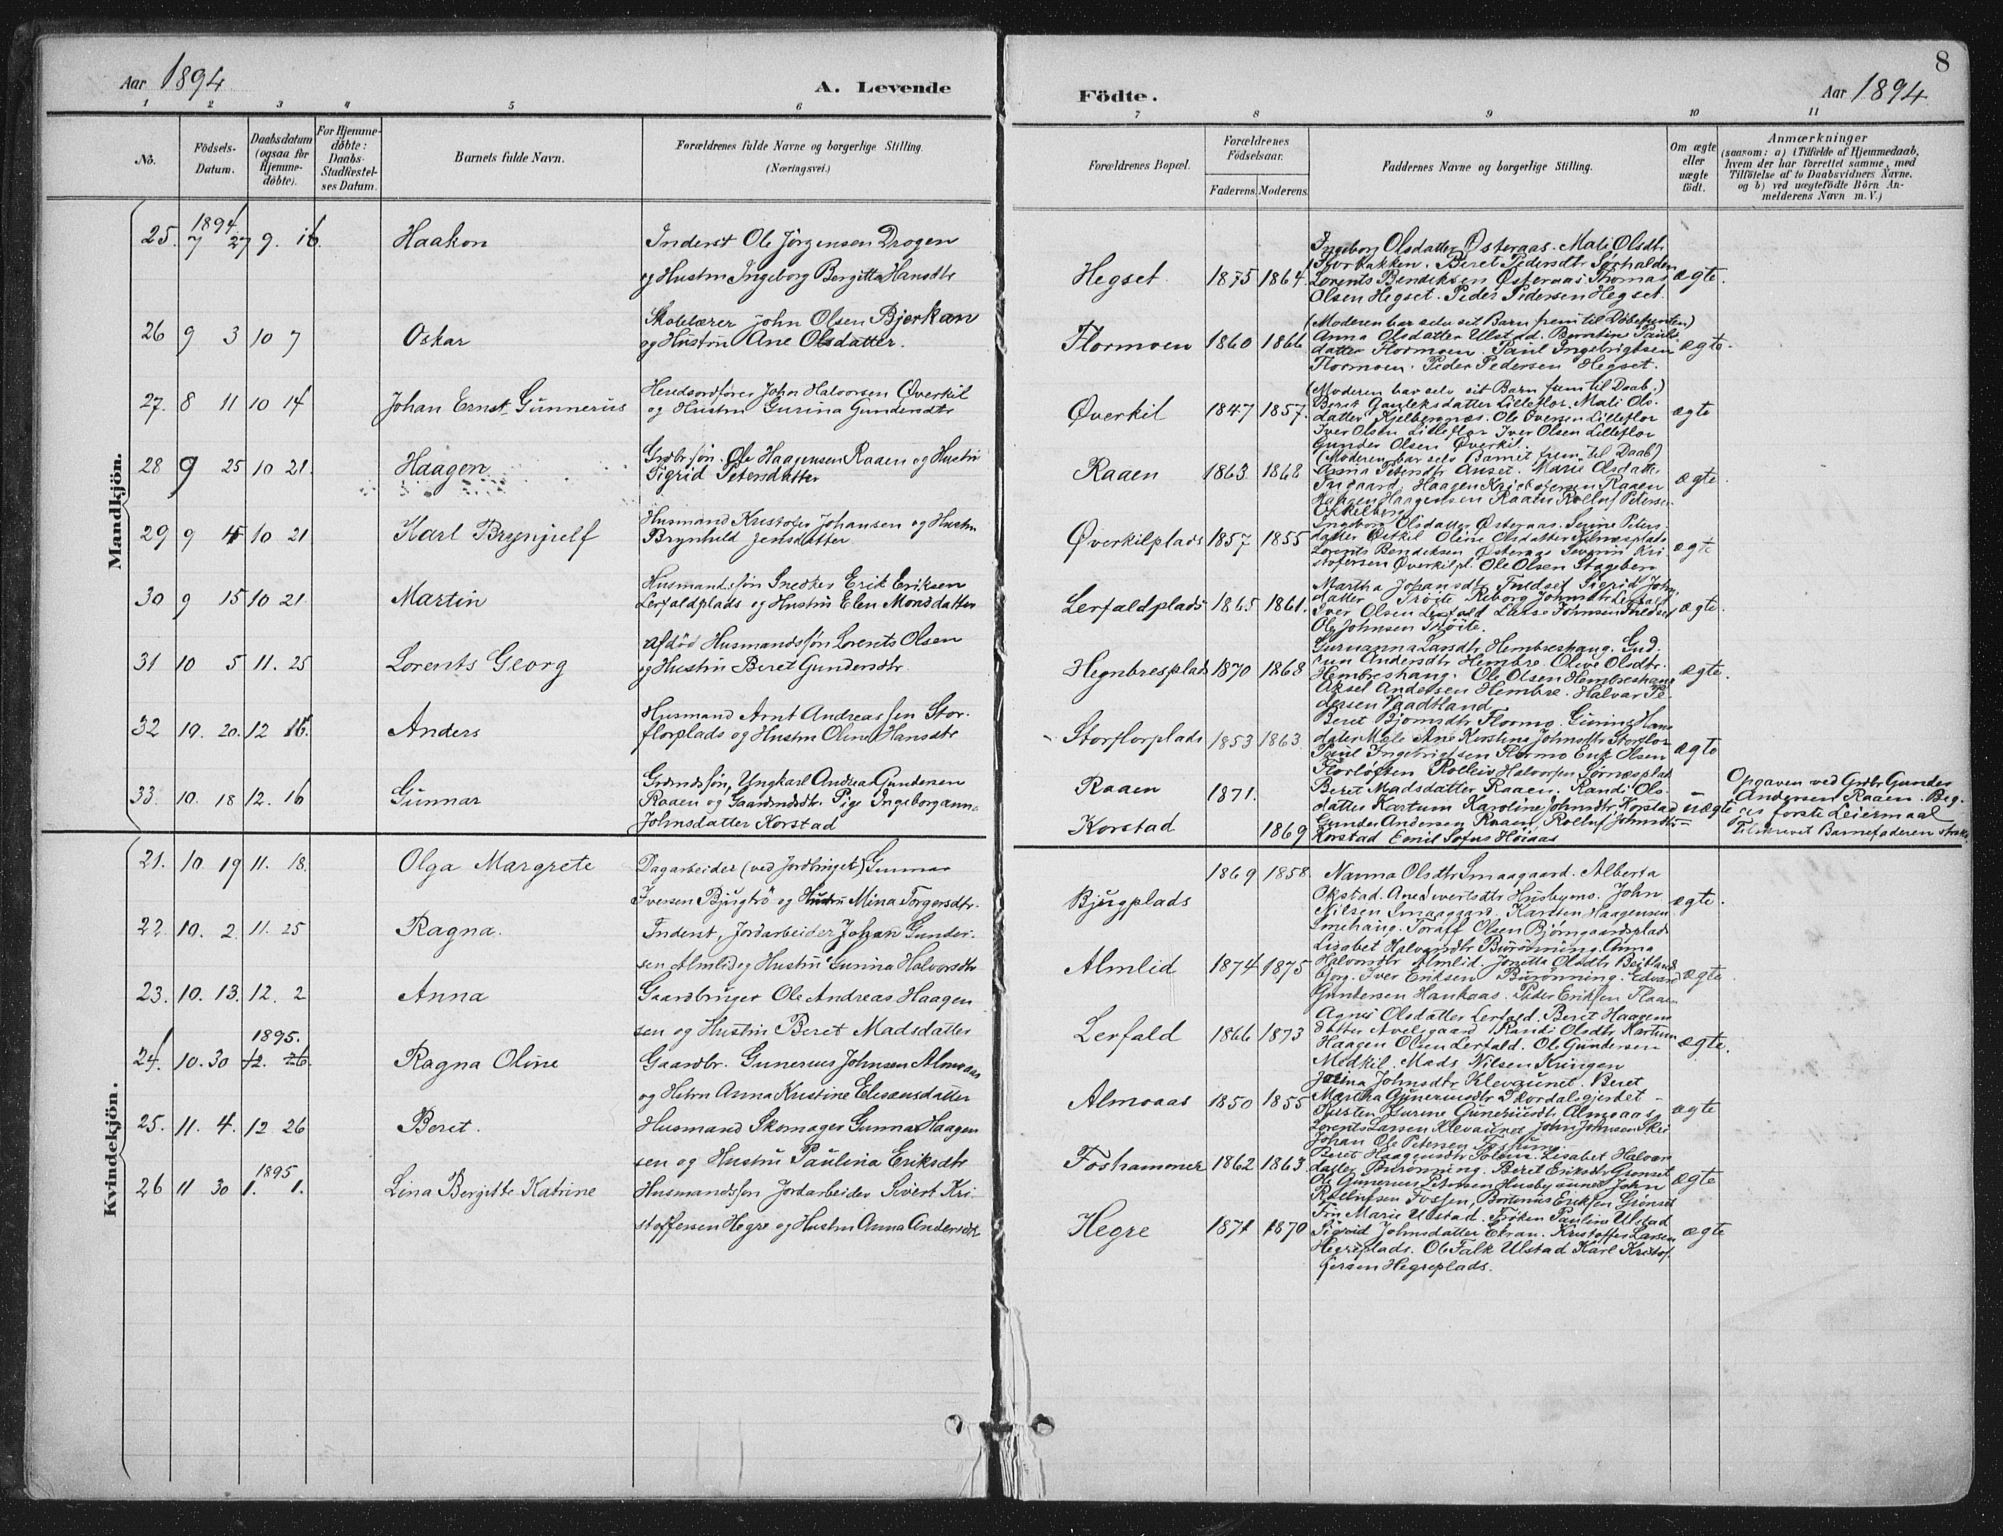 8
Aar 1894
A. Levende
Födte.
Aar 1894
1 2 3 4 5 6 7 8 9 10 11
No.
Födsels-
Datum.
Daabsdatum
(ogsaa for
Hjemme-
döbte).
For Hjemme-
döbte:
Daabs-
Stadfæstel-
ses Datum.
Barnets fulde Navn.
Forældrenes fulde Navne og borgerlige Stilling.
(Næringsvei.)
Forældrenes Bopæl.
Forældrenes
Födselsaar.
Faderens. Moderens.
Faddernes Navne og borgerlige Stilling.
Om ægte
eller
uægte
födt.
Anmærkninger
(saasom: a) i Tilfælde af Hjemmedaab,
hvem der har forrettet samme, med
Tilföielse af to Daabsvidners Navne.
og b) ved uægtefödte Börn An-
melderens Navn m. V.)
Mandkjön.
25. 1894 7 27 9. 16. Haakon
Inderst Ole Jörgensen Drogen
og Hustru Ingeborg Bergitta Hansdtr
Hegset 1875 1864
Ingeborg Olsdatter Østeraas. Mali Olsdtr.
Beret Pedersdtr Sørhalden
Lorents Bendiksen Østeraas Thomas
Olsen Hegset. Peder Pedersen Hegset.
ægte.
26 9 3 10 7 Oskar
Skolelærer John Olsen Bjerkan
og Hustru Ane Olsdatter.
Flormoen 1860 1866
(Moderen bar selv sit Barn frem til Döbefonten)
Anna Olsdatter Ulstad. Berntine Pauls
datter Flormoen. Paul Ingebrigtsen
Flormoen. Peder Pedersen Hegset.
ægte
27. 8 11 10 14 Johan Ernst Gunnerus
Herredsordfører John Halvorsen Øverkil
og Hustru Gurina Gundersdtr
Øverkil 1847 1857.
(Moderen bar selv sit Barn frem til Daab.)
Beret Gauleksdatter Lilleflor. Mali Ols-
datter Kjelbergnæs. Ole Oversen Lilleflor
Iver Olsen Lilleflor Iver Olsen Lilleflor
Gunder Olsen Øverkil.
ægte
28 9 25 10 21. Haagen
Grdbr.søn. Ole Haagensen Raaen og Hustru
Sigrid Petersdatter
Raaen 1863. 1868
(Moderen bar selv Barnet frem til Daab)
Anna Petersdtr Anset. Marie Olsdatter
Haagen Kristofersen Raaen
Haagen Haagensen Raaen Rolluf Peters
ægte.
29 9 15 10 21 Karl Brynjulf
Husmand Kristofer Johansen og Hustru
Brynhild Jensdatter
Øverkilplads 1857 1855
Ingeborg Olsdatter Østeraas. Peters-
datter Østkil Oline Olsdatter
Lorents Bendiksen Østeraas Severin Kri
stofersen Øverkilpl. Ole Olsen Stageberg
ægte
30 9 15 10 21 Martin
Husmandssøn Snedker Erik Eriksen
Lerfaldplads og Hustru Elen Monsdatter
Lerfaldplads 1865 1861.
Martha Johansdtr Fuldset Sigrid John
datter Trøite Johnsdtr Lerfald
Iver Olsen Lerfald Lasse Johnsen Fuldset
Ole Johnsen Trøite.
ægte.
31 10 5 11. 25 Lorents Georg
Afdød Husmandssøn Lorents Olsen
og Hustru Beret Gundersdtr.
Hembresplads 1870 1868
Gurianna Larsdtr Hembreshaug. Gud
run Andersdtr Hembre. Olive Olsdtr.
Hembreshaug. Ole Olsen Hembreshaug
Aksel Andersen Hembre. Halvar Pe-
dersen Vaadtland
ægte.
32 10. 20. 12 16. Anders
Husmand Arnt Andreassen Stor-
florplads og Hustru Olina Hansdtr
Storflorplads 1853 1863.
Beret Bjørnsdtr Flormo. Hans
datter Ane Kerstine Johnsdtr Storflor
Paul Ingebrigtsen Flormo Erik Olsen
Florløften Rolleiv Halvorsen
ægte
33. 10. 18 12. 16 Gunnar
Grdmdssøn, Ungkarl Andreas Gundersen
Raaen og Gaardmdsdtr. Pige Ingeborg ann
Johnsdatter Korstad
Raaen 1871.
Korstad 1869
Beret Madsdatter Raaen. Randi Ols-
datter Kartum Karoline Johnsdtr Korstad
Gunder Andersen Raaen Rolluf Johnsdtr
Korstad Emil Sofus Høiaas
uægte
Opgaven ved Grdbr Gunder
Andersen Raaen. Beg-
ges første Leiermaal
Tilskrevet Barnefaderen straks.
Kvindekjön.
21. 10. 19 11. 18. Olga Margrete
Dagarbeider (ved Jordbruget) Gunnar
Iversen Bjugtrö og Hustru Mina Torgersdtr.
Bjugplads 1869 1858.
Nanna Olsdtr Smaagaard. Alberta
Okstad. Ane Sivertsdtr Husbymo. John
Nilsen Smaagaard. Karsten Haagensen
Toraff Olsen Bjørngaardsplads
ægte.
22. 10. 2. 11. 25 Ragna.
Inderst, Jordarbeider Johan Gunder-
sen Almlid og Hustru Gurina Halvorsdtr
Almlid 1874 1875
Lisabet Halvorsdtr Burønning. Anna
Halvorsdtr Almlid. Jonetta Olsdtr Beitland
Iver Eriksen Burønning. Edvard
Gundersen Haukaas. Peder Eriksen Flaaen
ægte.
23. 10. 13. 12. 2 Anna
Gaardbruger Ole Andreas Haagen
sen og Hustru Beret Madsdatter
Lerfald 1866 1873
Agnes Olsdatter Lerfald. Beret Haagens
datter Avelsgaard Randi Olsdtr Kartum
Haagen Olsen Lerfald. Ole Gundersen
Medkil. Mads Nilsen Kringen
ægte.
24. 10. 30 1895. 12. 26. Ragna Oline
Gaardbr. Gunerius Johnsen Almoaas
og Hstru Anna Kristine Eliseusdatter
Almoaas 1850 1855
Johnsdtr Klevaunet. Beret
Martha Guneriusdtr Skordalsgjerdet
Kirsten Jurine Guneriusdtr Almoaas
Lorents Larsen Klevaunet John Johnsen Skei
Johan Ole Petersen
ægte
25. 11. 4. 12 26 Beret.
Husmand Skomager Gunnar Haagen
sen og Hustru Paulina Eriksdtr
Foshammer 1862 1863.
Beret Haagensdtr Fossen. Lisabet Halvors
datter Burønning. Beret Eriksdtr Grønset
Ole Gunerius Petersen Husbyaunet John
Rollufsen Fossen, Bortinus Eriksen Grønset
ægte
26 11 30 1895 1. 1. Lina Bergitte Katrine
Husmandssøn Jordarbeider Sivert Kri
stoffersen Hegre og Hustru Anna Andersdtr
Hegre 1871 1870
Fru Marie Ulstad. Frøken Paulina Ulstad
Sigrid Johnsdatter Ekran. Kristoffer Larsen
Hegreplads. Ole Falk Ulstad Karl Kristof
fersen Hegreplads.
ægte